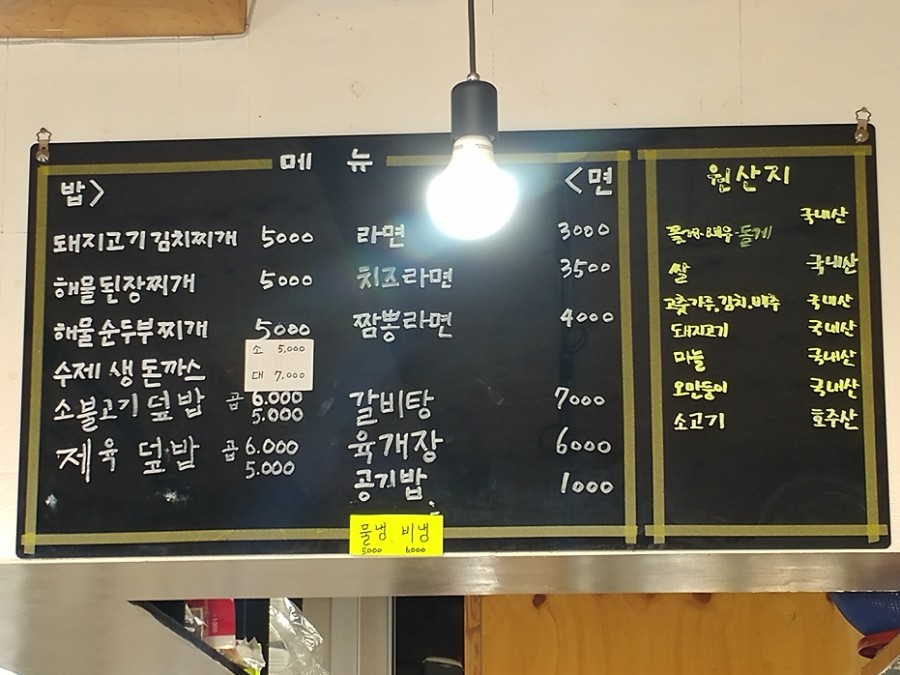 메 뉴
밥>
돼지고기 김치찌개 5000
해물 된장찌개 5000
해물 순두부찌개 5000
수제 생 돈까스
소 5,000
대 7,000
소불고기 덮밥 곱 6.000
5.000
제육 덮밥 곱 6.000
5.000
<면
라면 3000
치즈라면 3500
짬뽕라면 4000
갈비탕 7000
육개장 6000
공기밥 1000
물냉 비냉
5000 6,000
원산지
국내산
돌게
쌀 국내산
고춧가루,김치,배추 국내산
돼지고기 국내산
마늘 국내산
오만둥이 국내산
소고기 호주산